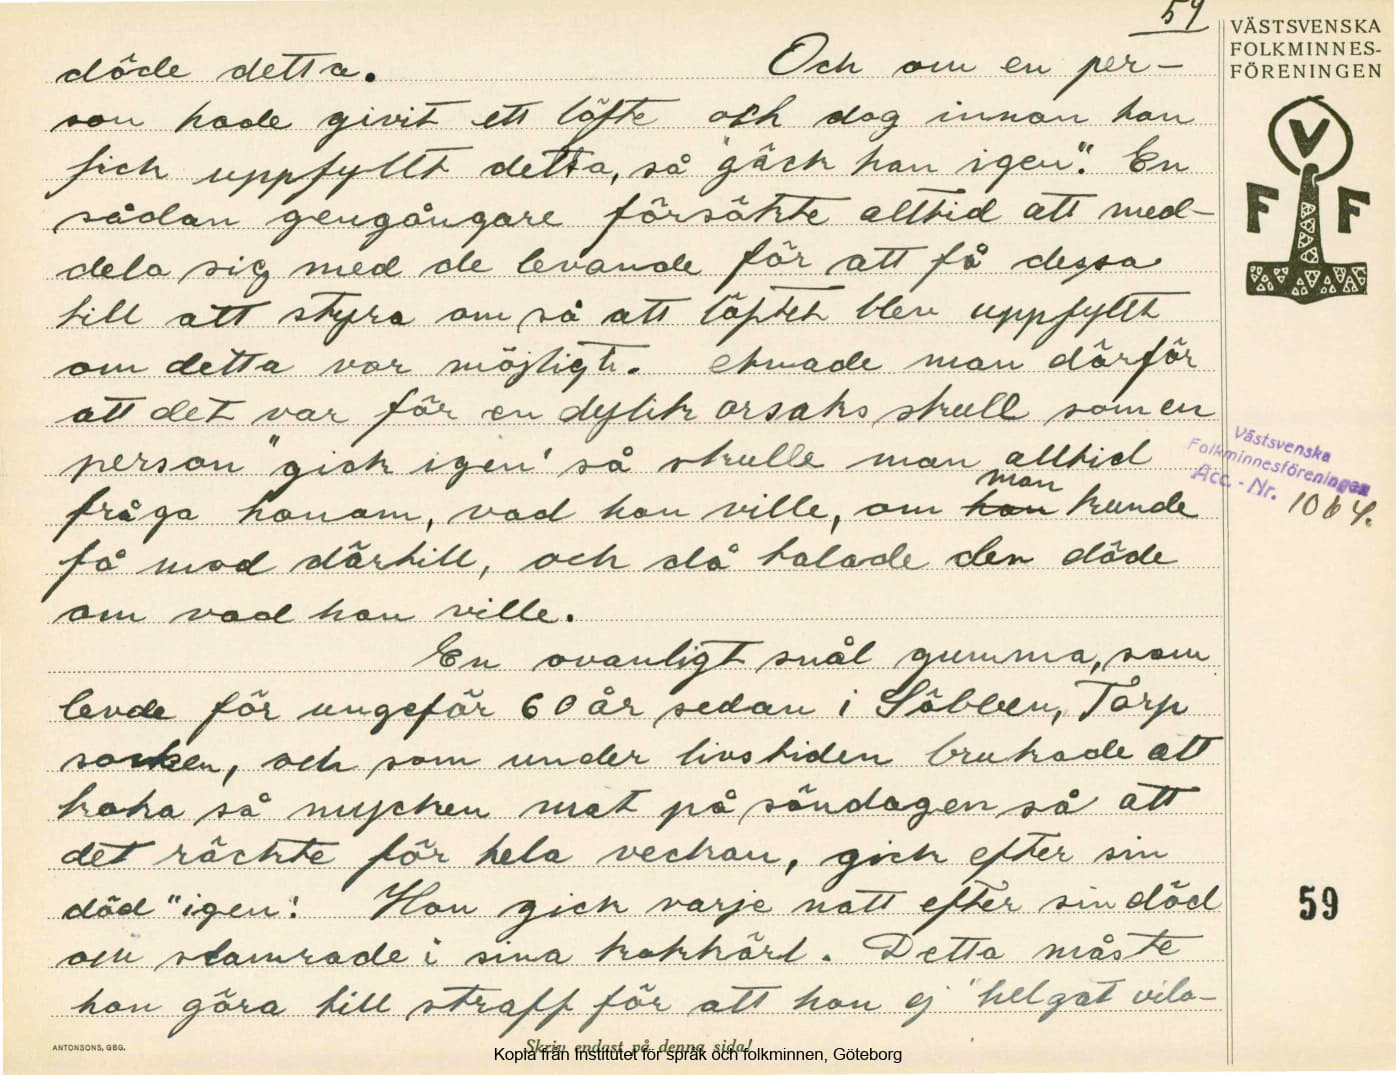 59
VÄSTSVENSKA
FOLKMINNES-
FÖRENINGEN
V
F F
döde detta. Och om en per-
son hade givit ett löfte och dog innan han
fick uppfyllt detta, så "gick han igen". En
sådan gengångare försökte alltid att med-
dela sig med de levande för att få dessa
till att styra om så att löftet blev uppfyllt
om detta var möjligt. man därför
att det var för en dylik orsaks skull som en
person "gick igen" så skulle man alltid
fråga honom, vad han ville, om han man kunde
få mod därtill, och då talade den döde
om vad han ville.
En ovanligt snål gumma, som
levde för ungefär 60 år sedan i Säbben, Torp
socken, och som under livstiden brukade att
koka så mycken mat på söndagen så att
det räckte för hela veckan, gick efter sin
död "igen". Hon gick varje natt efter sin död
om slamrade i sina kokkärl. Detta måste
hon göra till straff för att hon ej "helgat vilo-
Västsvenska
Folkminnesföreningen
Acc. - Nr. 1064.
59
ANTONSONS, GBG.
Skriv endast på denna sida!
Kopia från Institutet för språk och folkminnen, Göteborg